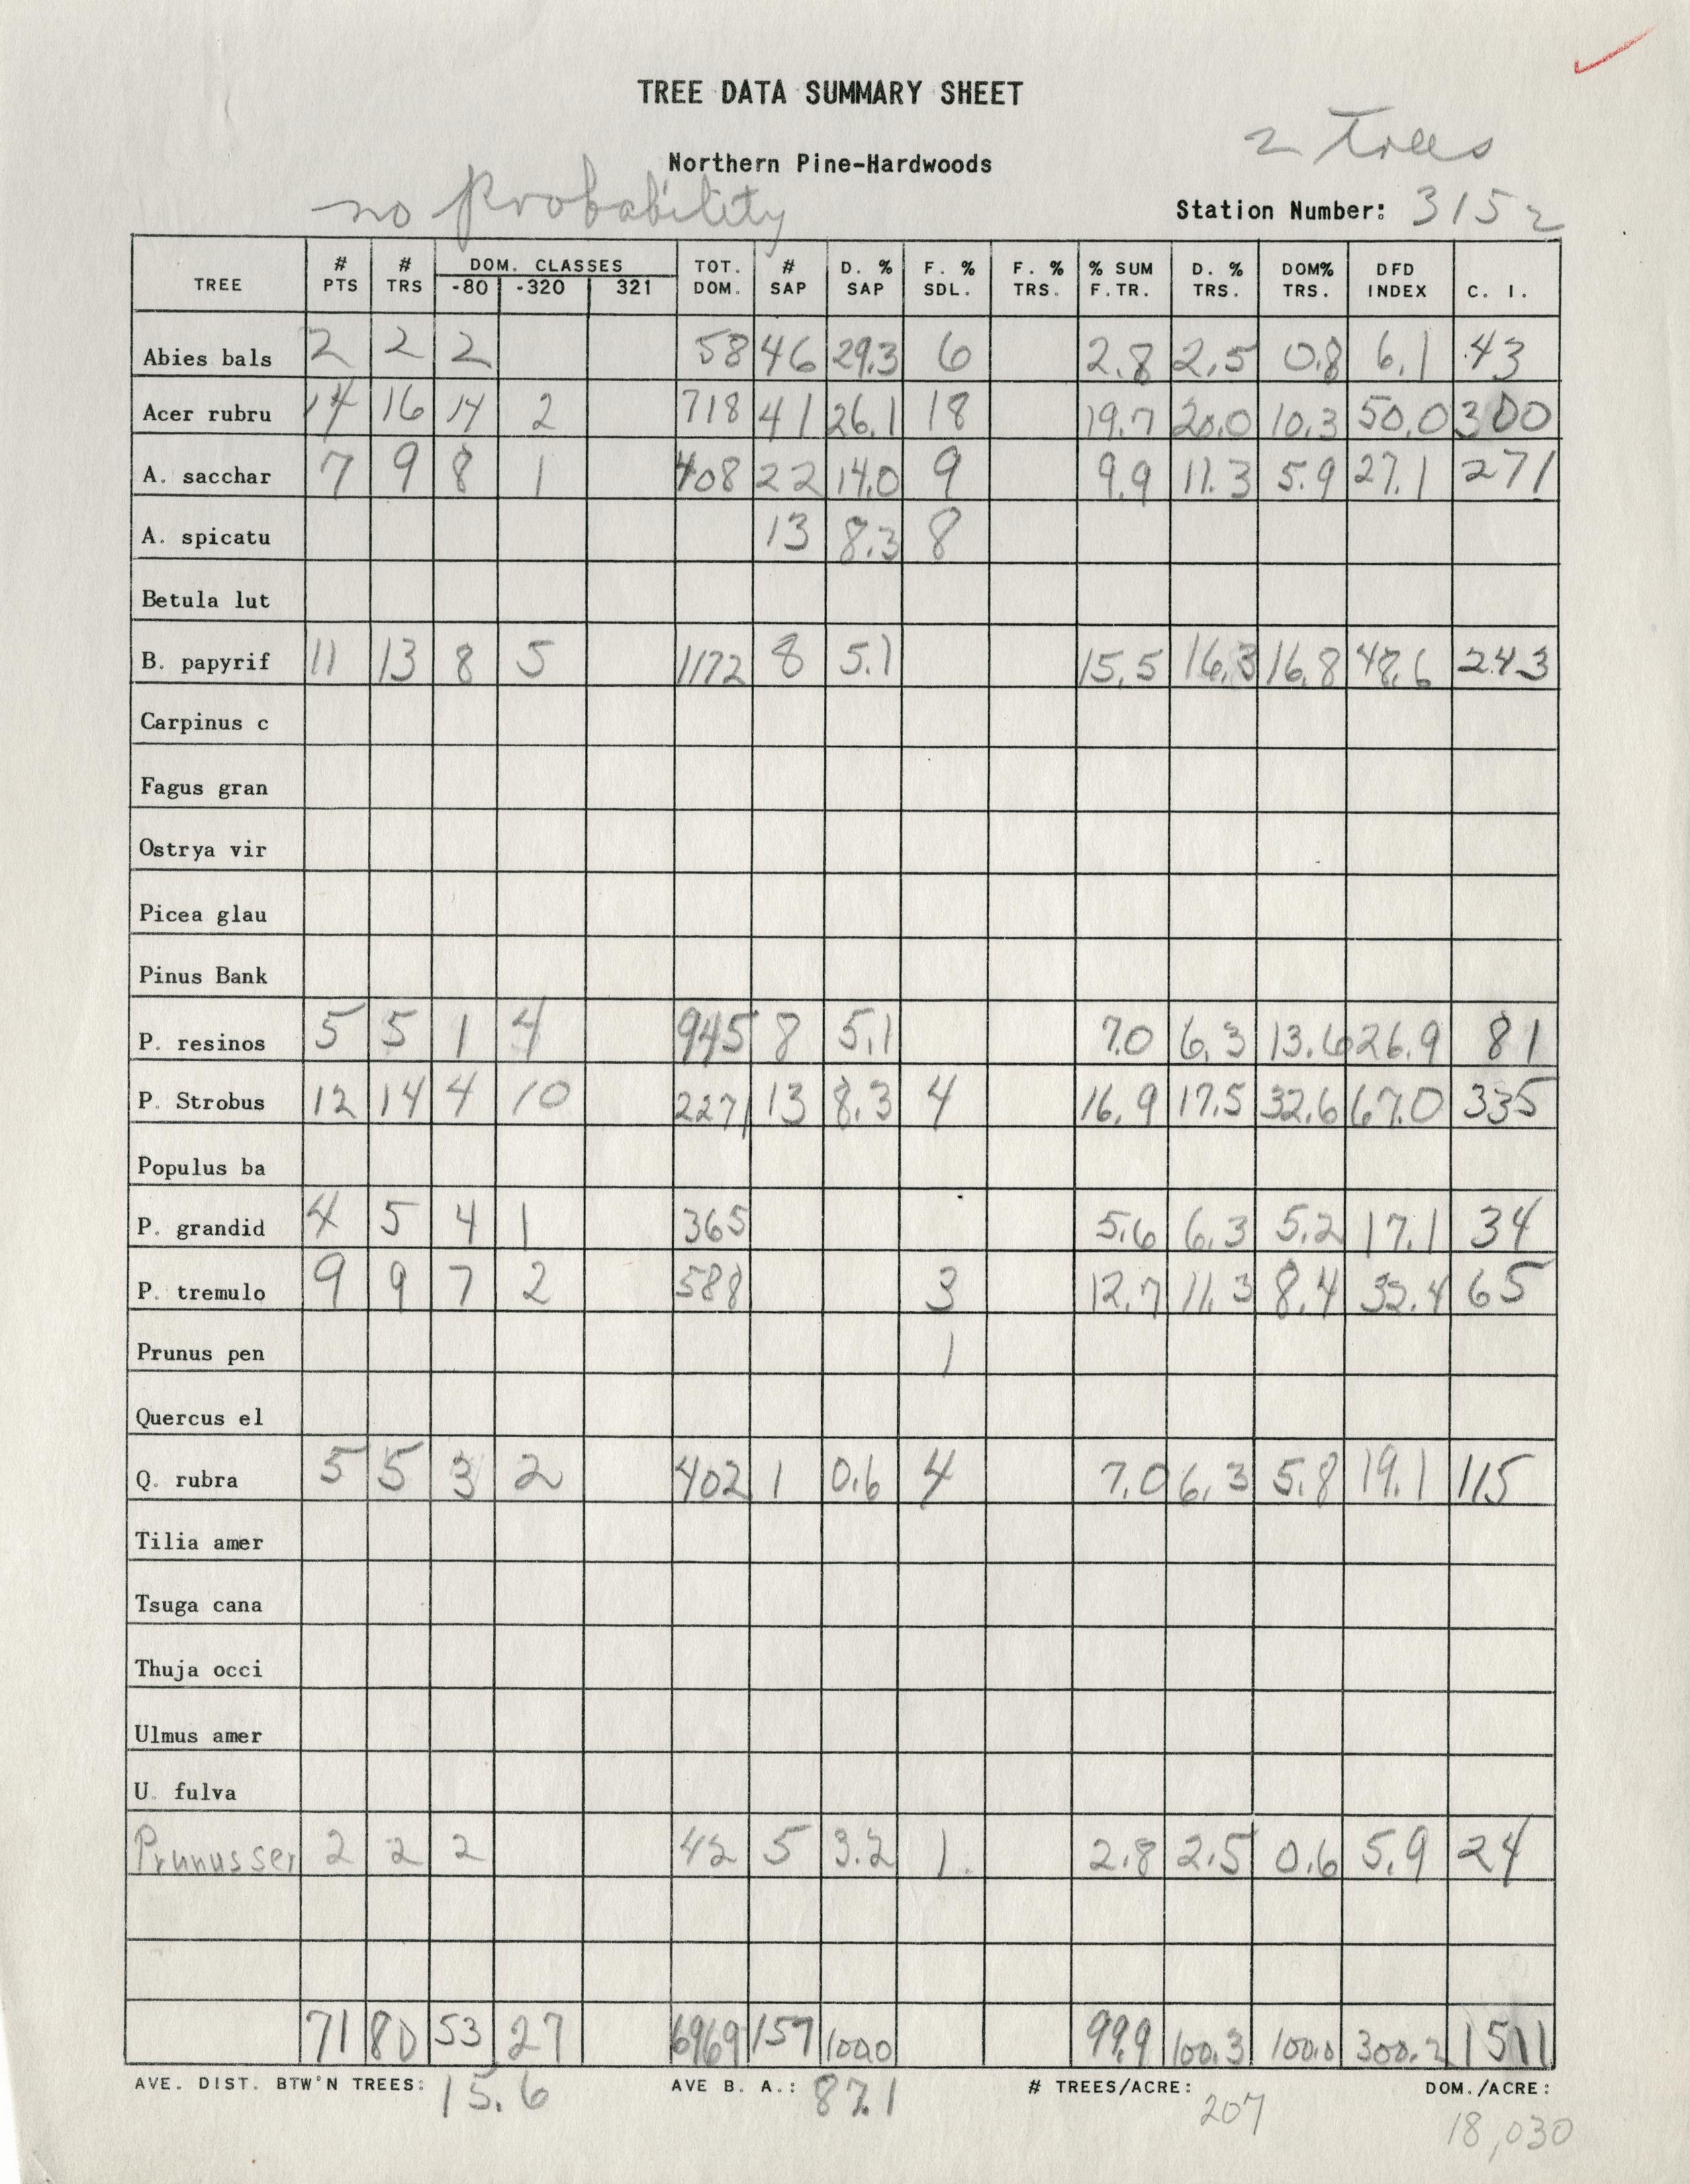 TREE DATA SUMMARY SHEET
2 Trees
Northern Pine-Hardwoods
no Probability
Station Number: 3152
TREE # PTS # TRS DOM. CLASSES -80 -320 321 TOT. DOM. # SAP D. % SAP F. % SDL. F. % TRS. % SUM F. TR. D. % TRS. DOM% TRS. DFD INDEX C. I.
Abies bals 2 2 2 58 46 29.3 6 2.8 2.5 0.8 6.1 43
Acer rubru 14 16 14 2 718 41 26.1 18 19.7 20.0 10.3 50.0 300
A. sacchar 7 9 8 1 408 22 14.0 9 9.9 11.3 5.9 27.1 271
A. spicatu 13 8.3 8
Betula lut
B. papyrif 11 13 8 5 1172 8 5.1 15.5 16.3 16.8 48.6 243
Carpinus c
Fagus gran
Ostrya vir
Picea glau
Pinus Bank
P. resinos 5 5 1 4 945 8 5.1 7.0 6.3 13.6 26.9 81
P. Strobus 12 14 4 10 2271 13 8.3 4 16.9 17.5 32.6 67.0 335
Populus ba
P. grandid 4 5 4 1 365 5.6 6.3 5.2 17.1 34
P. tremulo 9 9 7 2 588 3 12.7 11.3 8.4 32.4 65
Prunus pen 1
Quercus el
Q. rubra 5 5 3 2 402 1 0.6 4 7.0 6.3 5.8 19.1 115
Tilia amer
Tsuga cana
Thuja occi
Ulmus amer
U. fulva
Prunus ser 2 2 2 42 5 3.2 1. 2.8 2.5 0.6 5.9 24
71 80 53 27 6969 157 100.0 99.9 100.3 100.0 300.2 1511
AVE. DIST. BTW'N TREES: 15.6 AVE B. A.: 87.1 # TREES/ACRE: 207 DOM./ACRE: 18,030